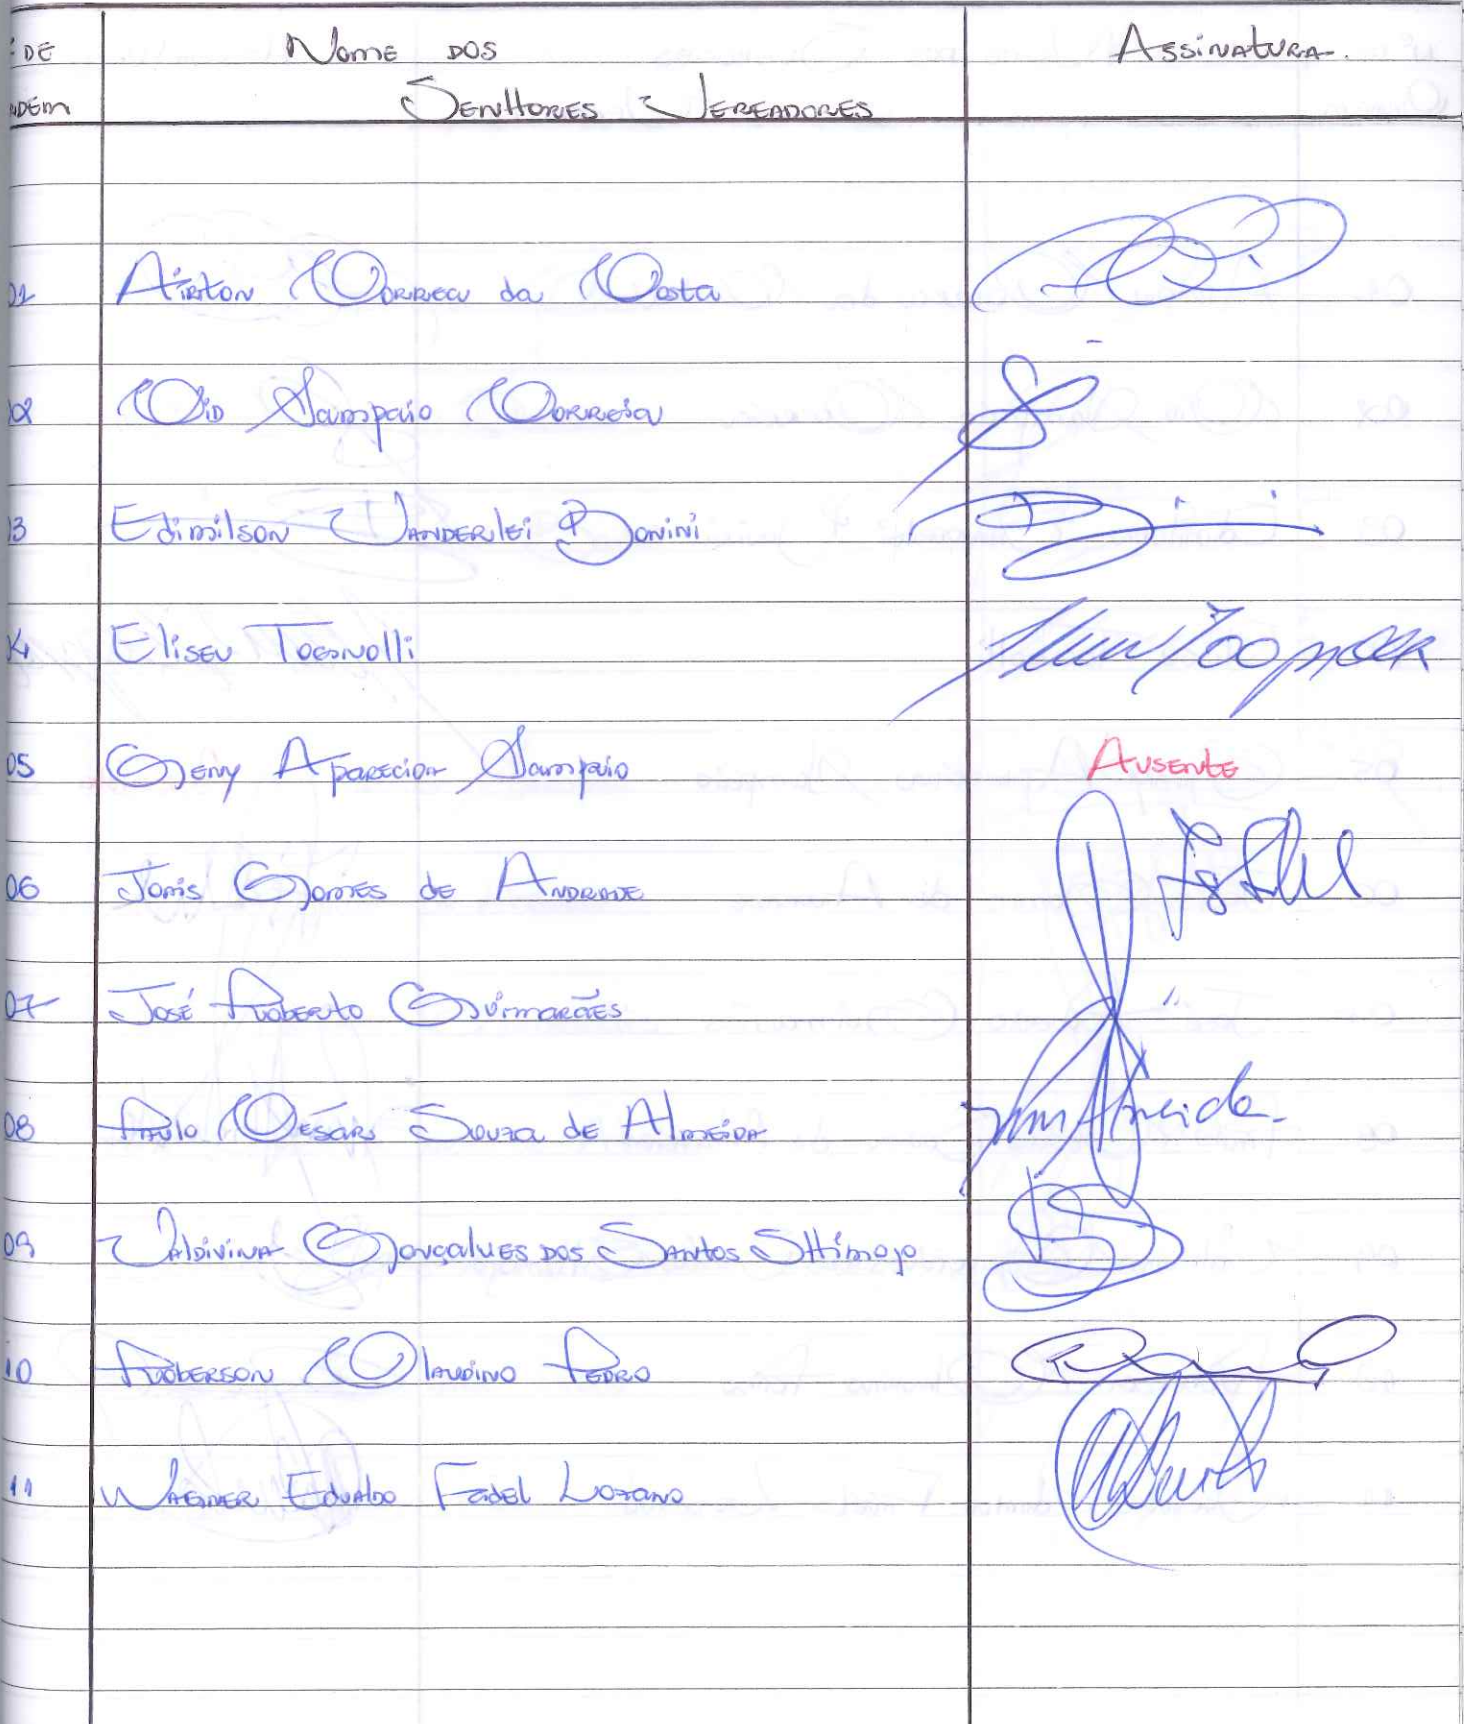 DE Nome dos Assinatura
Senhores Vereadores
01 Airton Correa da Costa
02 Cid Sampaio Correia
03 Edimilson Vanderlei Bonini
04 Eliseu Tognolli
05 Geny Aparecida Sampaio Ausente
06 Jonis Gomes de Andrade
07 José Roberto Guimarães
08 Paulo César Souza de Almeida
09 Valdivina Gonçalves dos Santos Shimojo
10 Roberson Claudino Pedro
11 Wagner Edualdo Fadel Lozano